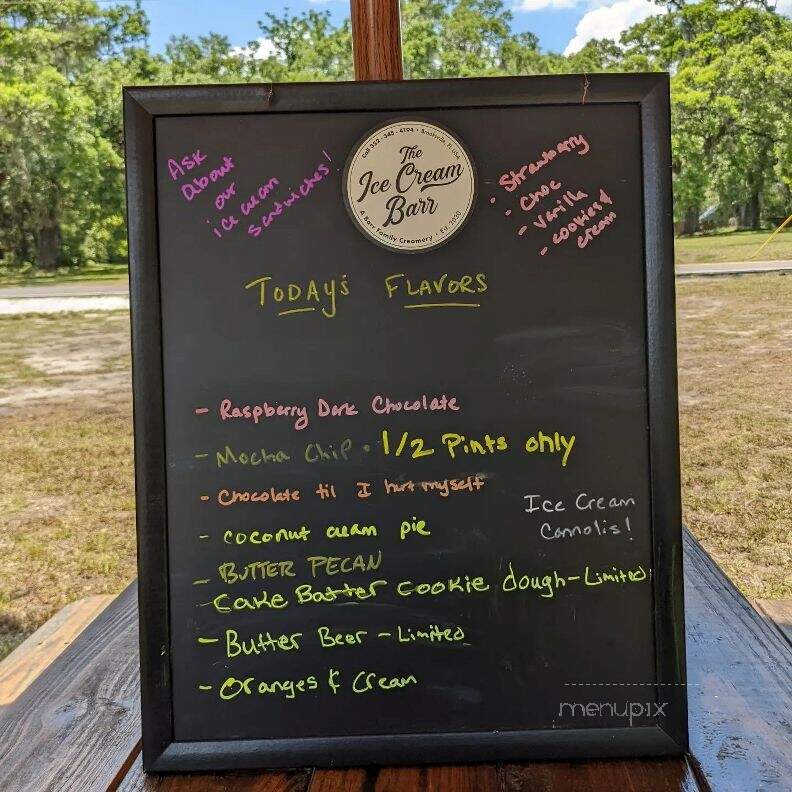 Ask
about
our
ice cream
sandwiches!
Call 352-345-4194 • Brooksville, FL USA
The
Ice Cream
Barr
A Barr Family Creamery • Est. 2020
• Strawberry
- Choc
- Vanilla
- cookies &
cream
TODAY'S FLAVORS
- Raspberry Dark Chocolate
- Mocha Chip • 1/2 Pints only
- Chocolate til I hurt myself
- coconut cream pie
Ice Cream
Connolis!
- BUTTER PECAN
- Cake Batter Cookie dough - Limited
- Butter Beer - Limited
- Oranges & Cream
menupix